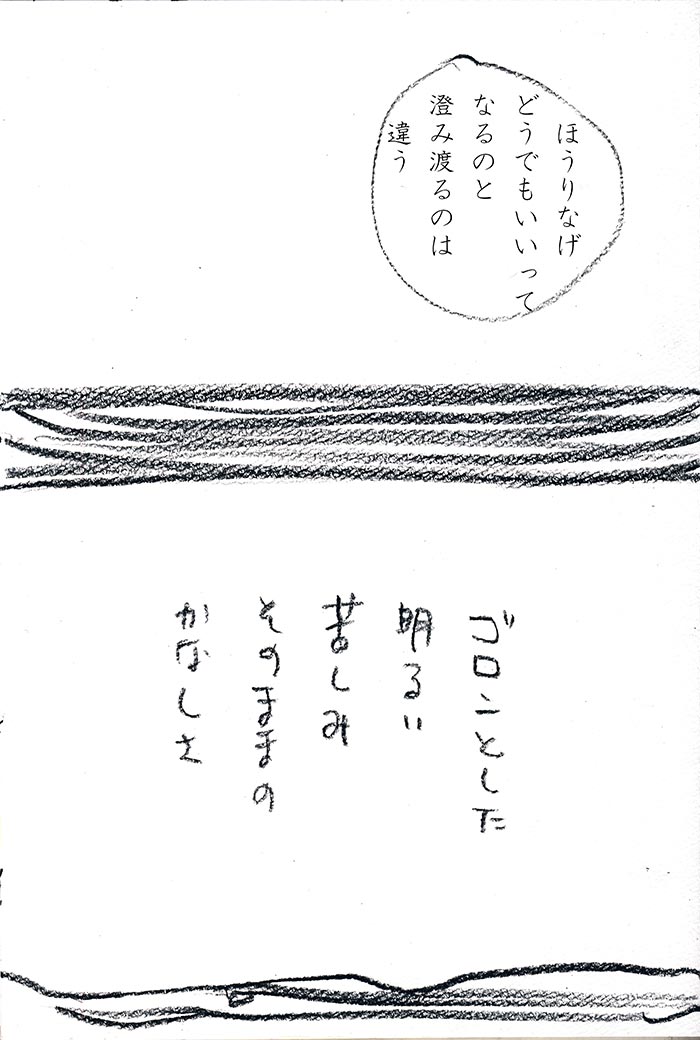 ほうりなげ
どうでもいいって
なるのと
澄み渡るのは
違う
ゴロンとした
明るい
苦しみ
そのままの
かなしさ